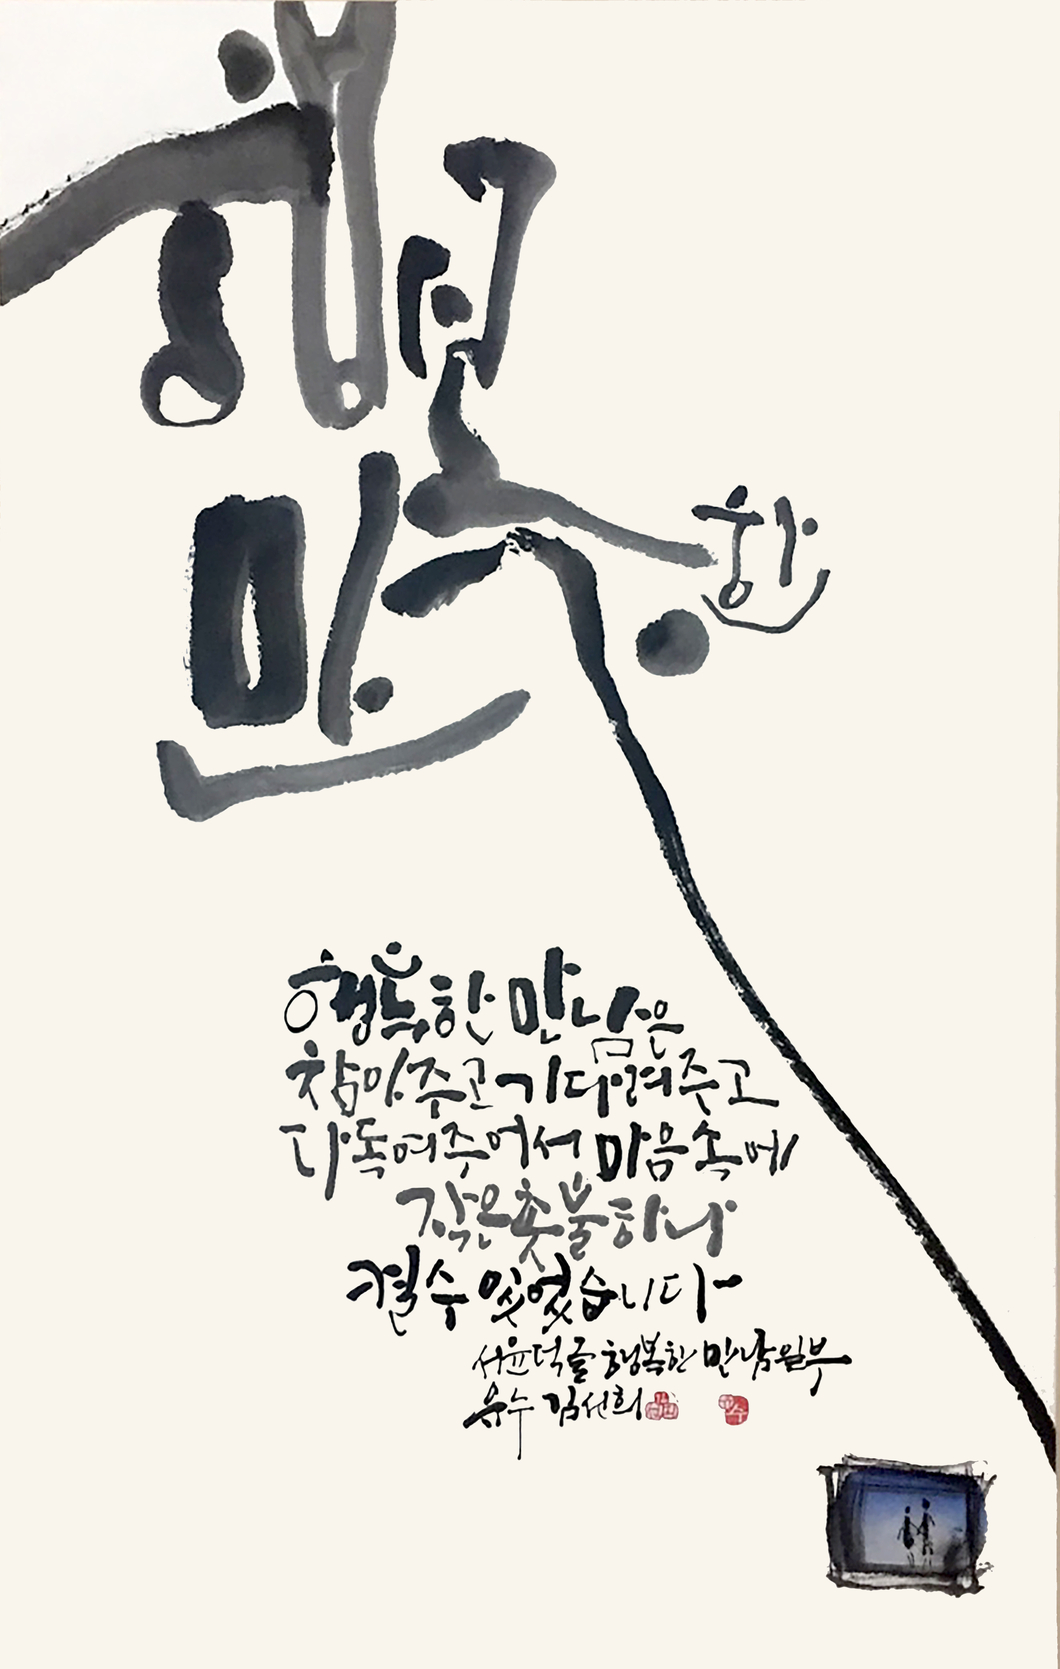 행복한
만
행복한 만남은
참아주고 기다려주고
다독여주어서 마음속에
작은 촛불 하나
켤 수 있었습니다
서윤덕 글 행복한 만남 일부
김선희